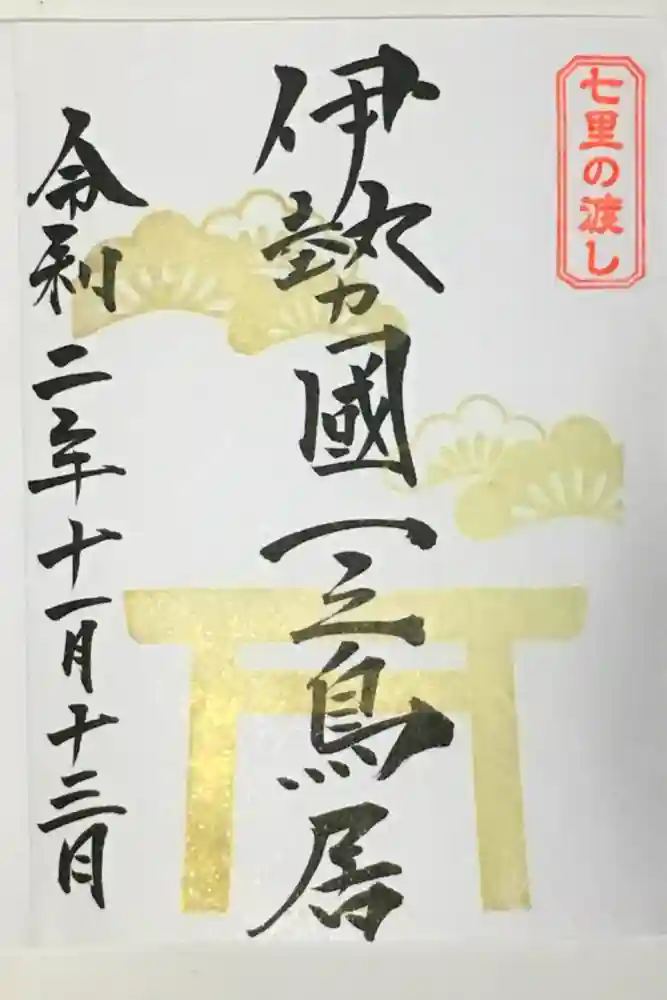 七里の渡し
伊勢國一之鳥居
令和二年十一月十三日